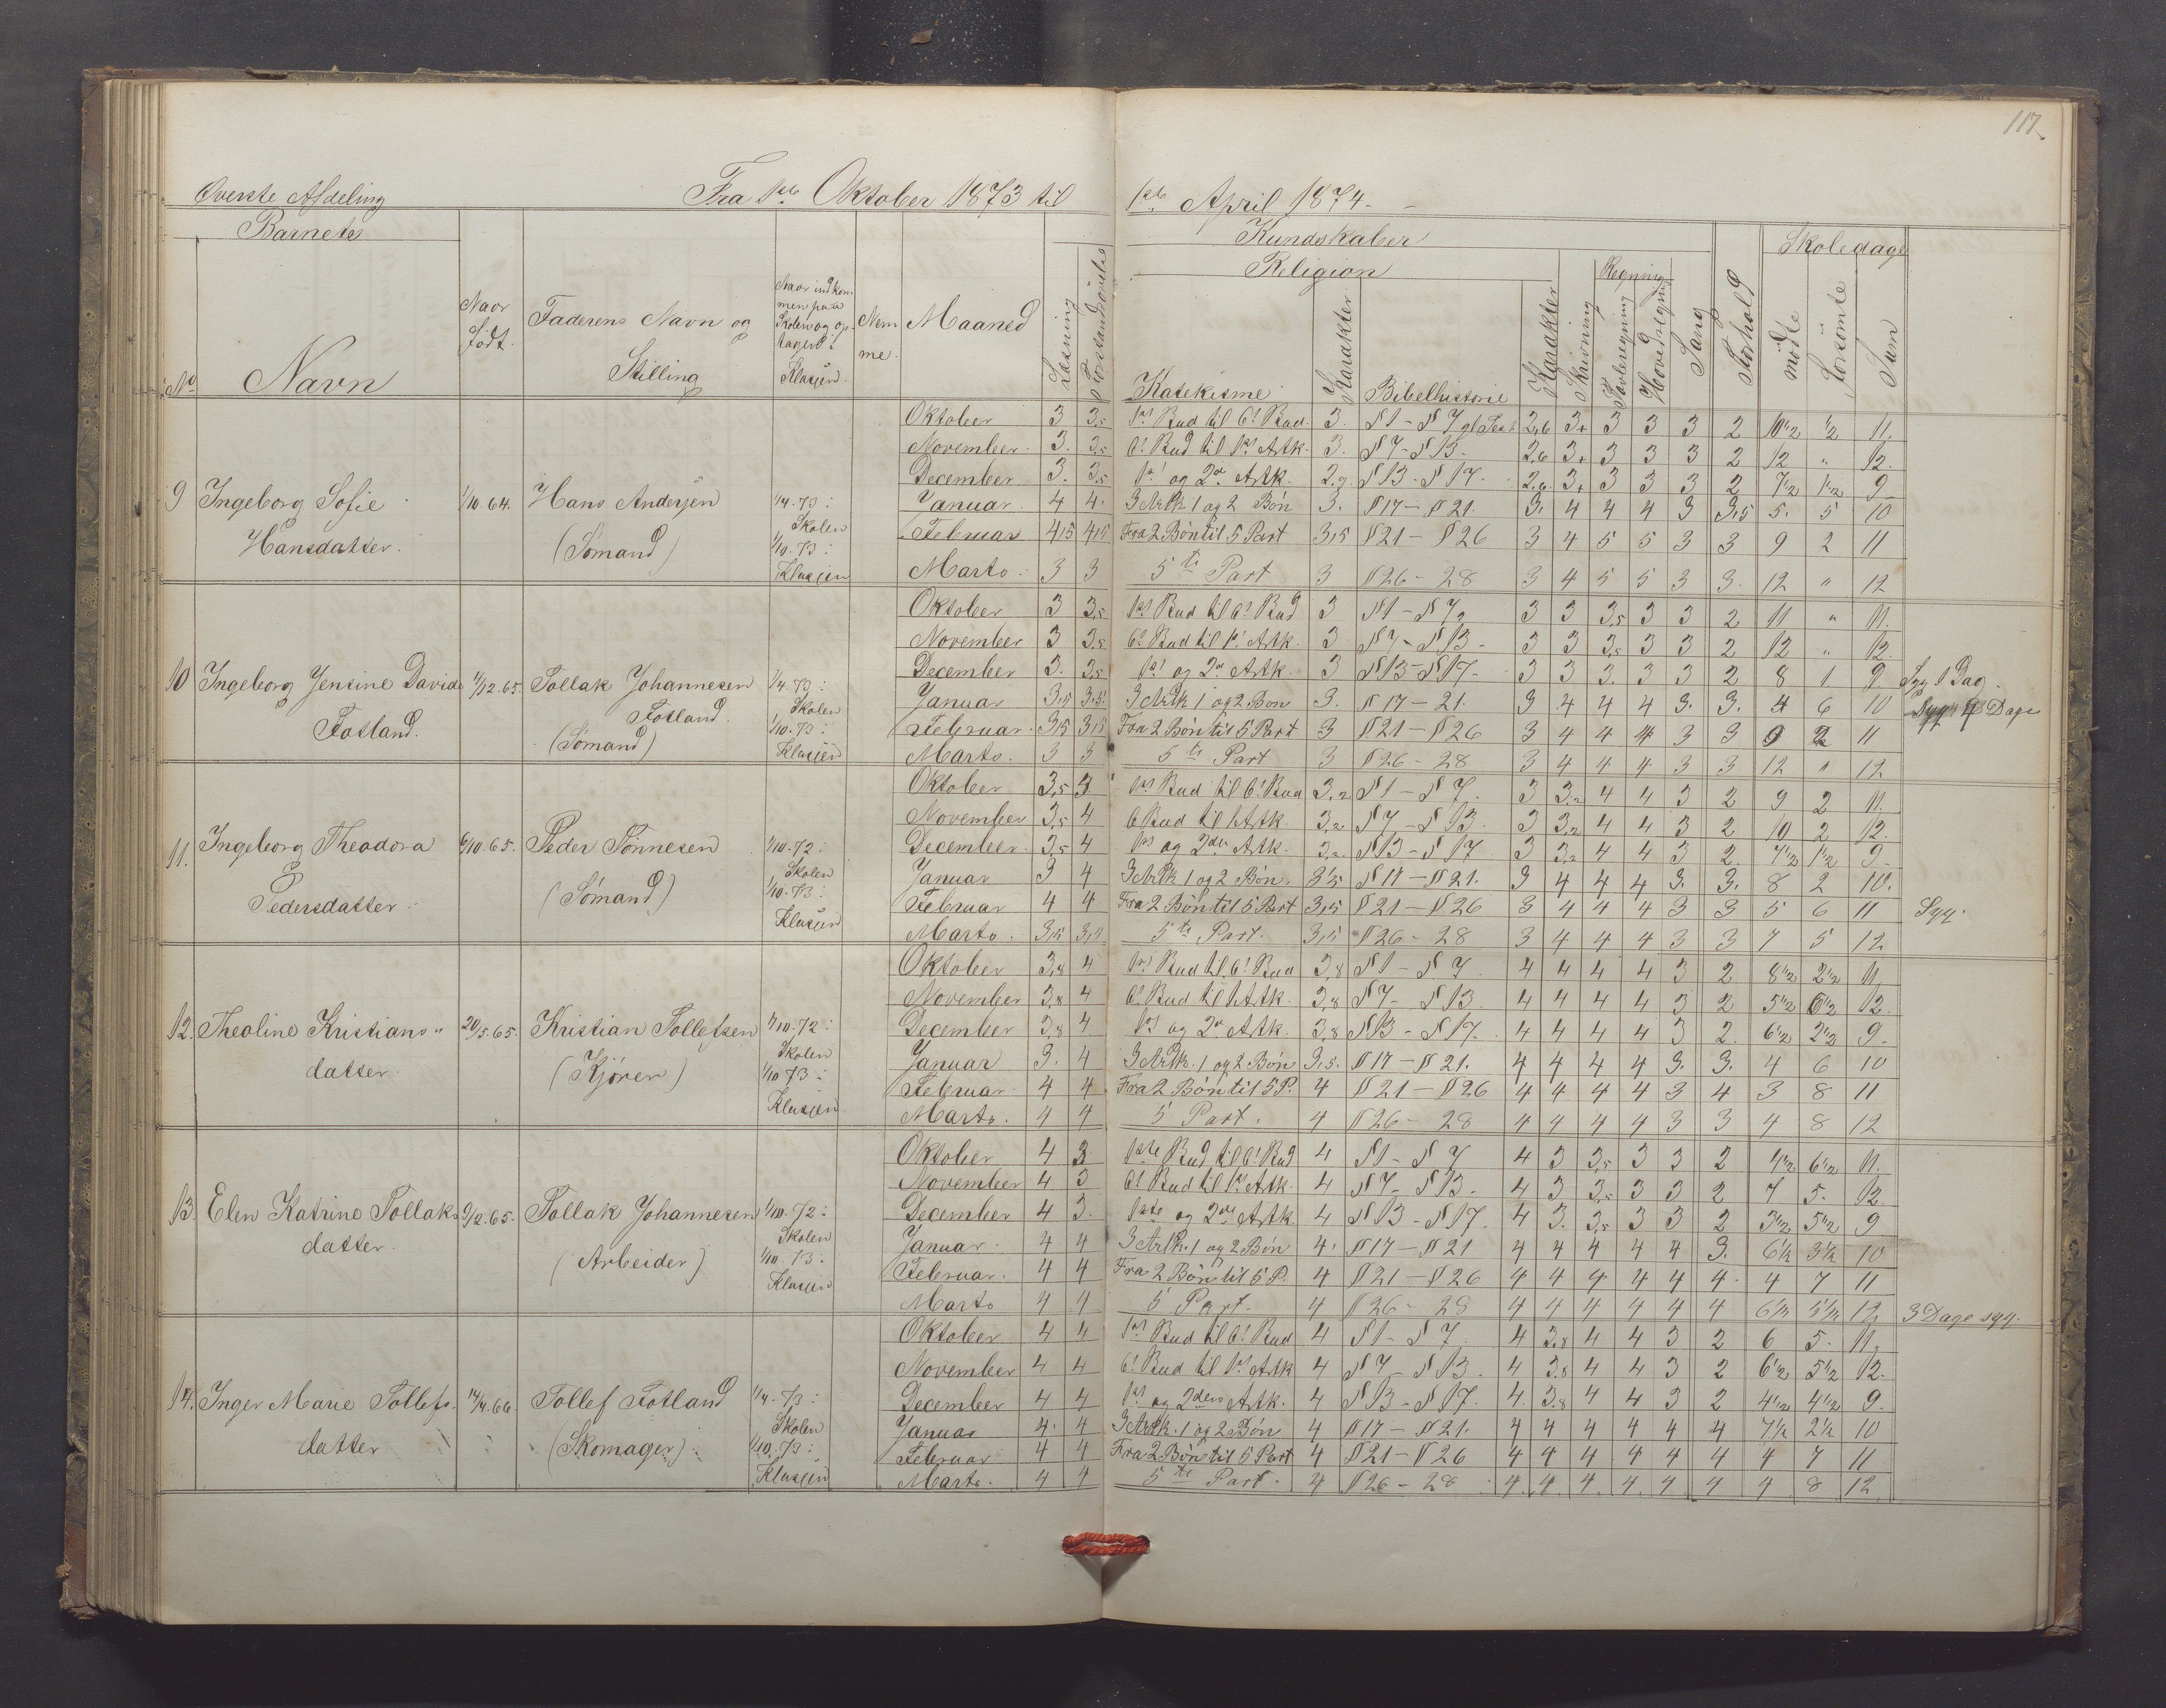 117.
Øverste Afdeling Fra 1ste Oktober 1873 til 1ste April 1874.
Barnets Kundskaber Skoledage
Religion Regning
No Navn Naar født. Faderens Navn og Stilling Naar indkommen paa Skolen og optagen i Klassen. Nemme. Maaned Læsning Forstandsøvelse Katekisme Karakter Bibelhistorie Karakter Skrivning Tavleregning Hovedregning Sang Forhold mødte forsømte Sum
9 Ingeborg Sofie Hansdatter. 1/10.64. Hans Andersen (Sømand) 1/4.73: Skolen 1/10.73: Klassen
Oktober 3 3,5 1st Bud til 6t Bud. 3. § 1 - § 7 gl Test 2,6 3+ 3 3 3 2 10 1/2 1/2 11.
November 3. 3,5 6t Bud til 1st Artk. 3. § 7 - § 13. 2,6 3+ 3 3 3 2 12 " 12.
December 3. 3,5 1st og 2n Artk. 2,9. § 13 - § 17. 2,6 3+ 3 3 3 2 7 1/2 1 1/2 9
Januar 4 4. 3 Artk 1 og 2 Bøn 3. § 17 - § 21. 3. 4 4 4 3 3,5 5. 5 10
Februar 4,5 4,5 Fra 2 Bøn til 5 Part 3,5 § 21 - § 26 3 4 5 5 3 3 9 2 11
Marts 3 3 5te Part 3 § 26 - 28 3 4 5 5 3 3. 12 " 12
10 Ingeborg Jensine Davida Fotland. 11/12.65. Tollak Johannesen Fotland. (Sømand) 1/4.73: Skolen 1/10.73: Klassen
Oktober 3 3,5 1st Bud til 6t Bud 3 § 1 - § 7 3 3 3,5 3 3 2 11 " 11.
November 3 3,5 6t Bud til 1t Artk. 3 § 7 - § 13 - 3 3 3,5 3 3 2 12 " 12.
December 3. 3,5 1st og 2n Artk. 3 § 13 - § 17. 3 3 3. 3 3 2 8 1 9 Syg 1 Dag
Januar 3,5 3,5 3 Artk 1 og 2 Bøn 3. § 17 - 21. 3 4 4 4 3. 3. 4 6 10 Syg 4 Dage
Februar 3,5 3,5 Fra 2 Bøn til 5 Part 3 § 21 - § 26 3 4 4 4 3 3 9 2 11
Marts. 3 3 5te Part 3 § 26 - 28 3 4 4 4 3 3 12 " 12
11. Ingeborg Theodora Pedersdatter. 6/10.65. Peder Tønnesen (Sømand) 1/10.72: Skolen 1/10.73: Klassen
Oktober 3,5 3 1st Bud til 6t Bud 3,2 § 1 - § 7. 3 3,2 4 4 3 2 9 2 11.
November 3,5 4 6 Bud til 1 Artk. 3,2 § 7 - § 13. 3 3,2 4 4 3 2 10 2 12.
December 3,5 4 1st og 2den Artk. 3,2 § 13 - § 17 3 3,2 4 4 3 2. 7 1/2 1 1/2 9
Januar 3 4 3 Artk 1 og 2 Bøn. 3,5 § 17 - § 21. 3 4 4 4 3. 3. 8 2 10.
Februar 4 4 Fra 2 Bøn til 5 Part 3,5 § 21 - § 26 3 4 4 4 3 3 5 6 11 Syg.
Marts. 3,5 3,5 5te Part. 3,5 § 26 - 28 3 4 4 4 3 3 7 5 12
12. Theoline Kristiansdatter. 20/5.65. Kristian Tollefsen (Kjører) 1/10.72: Skolen 1/10.73: Klassen
Oktober 3,8 4 1st Bud til 6t Bud 3,8 § 1 - § 7. 4 4 4 4 3 2 8 1/2 2 1/2 11
November 3,8 4 6t Bud til 1 Artk. 3,8 § 7 - § 13. 4 4 4 4 3 2 5 1/2 6 1/2 12.
December 3,8 4 1st og 2n Artk. 3,8 § 13 - § 17. 4 4 4 4 3 2. 6 1/2 2 1/2 9.
Januar 3. 4 3 Artk. 1 og 2 Bøn 3,5. § 17 - § 21. 4 4 4 4 3. 3. 4 6 10
Februar 4 4 Fra 2 Bøn til 5 P. 4 § 21 - § 26 4 4 4 4 3 4 3 8 11
Marts. 4 4 5 Part. 4 § 26 - 28 4 4 4 4 3 3 4 8 12
13 Elen Katrine Tollaksdatter. 9/2.65. Tollak Johannesen (Arbeider) 1/10.72: Skolen 1/10.73: Klassen
Oktober 4 3 1ste Bud til 6t Bud 4 § 1 - § 7 4 3 3,5 3 3 2 4 1/2 6 1/2 11.
November 4 3 6t Bud til 1st Artk. 4 § 7 - § 13. 4 3 3,5 3 3 2 7 5. 12.
December 4 3. 1ste og 2den Artk 4 § 13 - § 17. 4 3. 3,5 3 3 2 3 1/2 5 1/2 9
Januar 4 4 3 Artk. 1 og 2 Bøn 4. § 17 - § 21 4 4 4 4 4 3. 6 1/2 3 1/2 10
Februar. 4 4 Fra 2 Bøn til 5 P. 4 § 21 - § 26 4 4 4 4 4 4. 4 7 11
Marts 4 4 5 Part. 4 § 26 - 28 4 4 4 4 4 4 6 1/2 5 1/2 12 3 Dage syg.
14. Inger Marie Tollefsdatter 14/4.66 Tollef Fotland (Skomager) 1/4.73: Skolen 1/10.73: Klassen
Oktober 4 4 1st Bud til 6t Bud 4 § 1 - § 7. 4 3,8 4 4 3 2 6 5. 11.
November 4 4 6t Bud til 1st Artk 4 § 7 - § 13. 4 3,8 4 4 3 2 6 1/2 5 1/2 12.
December 4 4 1st og 2den Artk. 4 § 13 - § 17. 4. 3,8 4 4 3 2 4 1/2 4 1/2 9.
Januar 4. 4 3 Artk. 1 og 2 Bøn 4 § 17 - § 21. 4 4 4 4 4 4 7 1/2 2 1/2 10
Februar 4 4 Fra 2 Bøn til 5 Part 4 § 21 - § 26 4 4 4 4 4 4 4 7 11
Marts. 4 4 5te Part. 4 § 26 - 28 4. 4. 4. 4. 4. 4 4 8 12